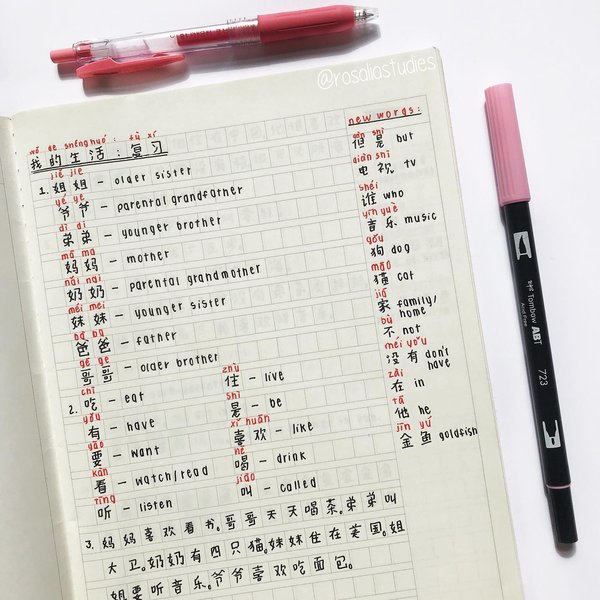 @rosaliastudies
wǒ de shēnghuó : fù xí
我的生活：复习
jiě jie
1. 姐姐 - older sister
yé ye
爷爷 - parental grandfather
dì di
弟弟 - younger brother
mā ma
妈妈 - mother
nǎi nai
奶奶 - parental grandmother
mèi mei
妹妹 - younger sister
bà ba
爸爸 - father
gē ge
哥哥 - older brother
chī
2. 吃 - eat
yǒu
有 - have
yào
要 - want
kàn
看 - watch/read
tīng
听 - listen
zhù
住 - live
shì
是 - be
xǐ huān
喜欢 - like
hē
喝 - drink
jiào
叫 - called
3. 妈妈喜欢看书。哥哥天天喝茶。弟弟叫
大卫。奶奶有四只猫。妹妹住在美国。姐
姐要听音乐。爷爷喜欢吃面包。
new words:
dàn shì
但是 but
diàn shì
电视 tv
shéi
谁 who
yīn yuè
音乐 music
gǒu
狗 dog
māo
猫 cat
jiā
家 family/
home
bù
不 not
méi yǒu
没有 don't
have
zài
在 in
tā
他 he
jīn yú
金鱼 goldfish
Tombow ABT
Acid Free
723